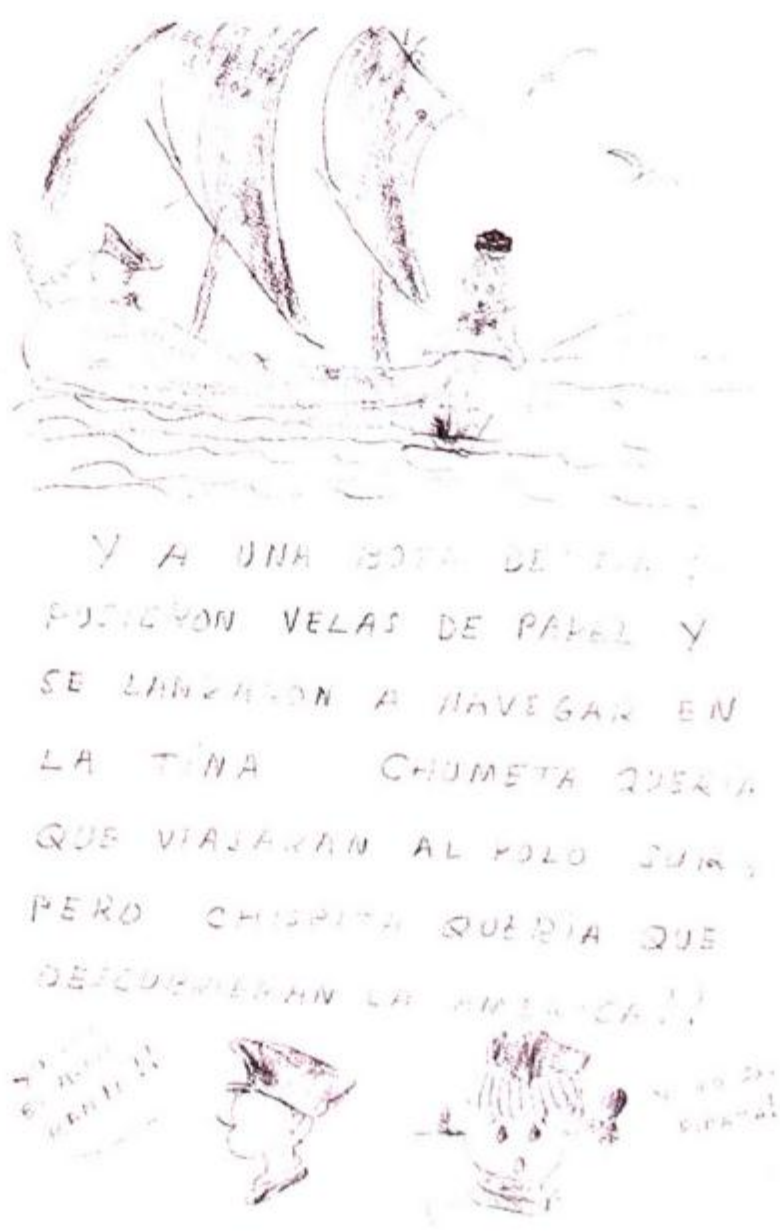 Y A UNA BOTA DE
PUSIERON VELAS DE PAPEL Y
SE LANZARON A NAVEGAR EN
LA TINA CHUMETA QUERIA
QUE VIAJARAN AL POLO SUR,
PERO CHISPITA QUERIA QUE
DESCUBRIERAN LA AMERICA!!